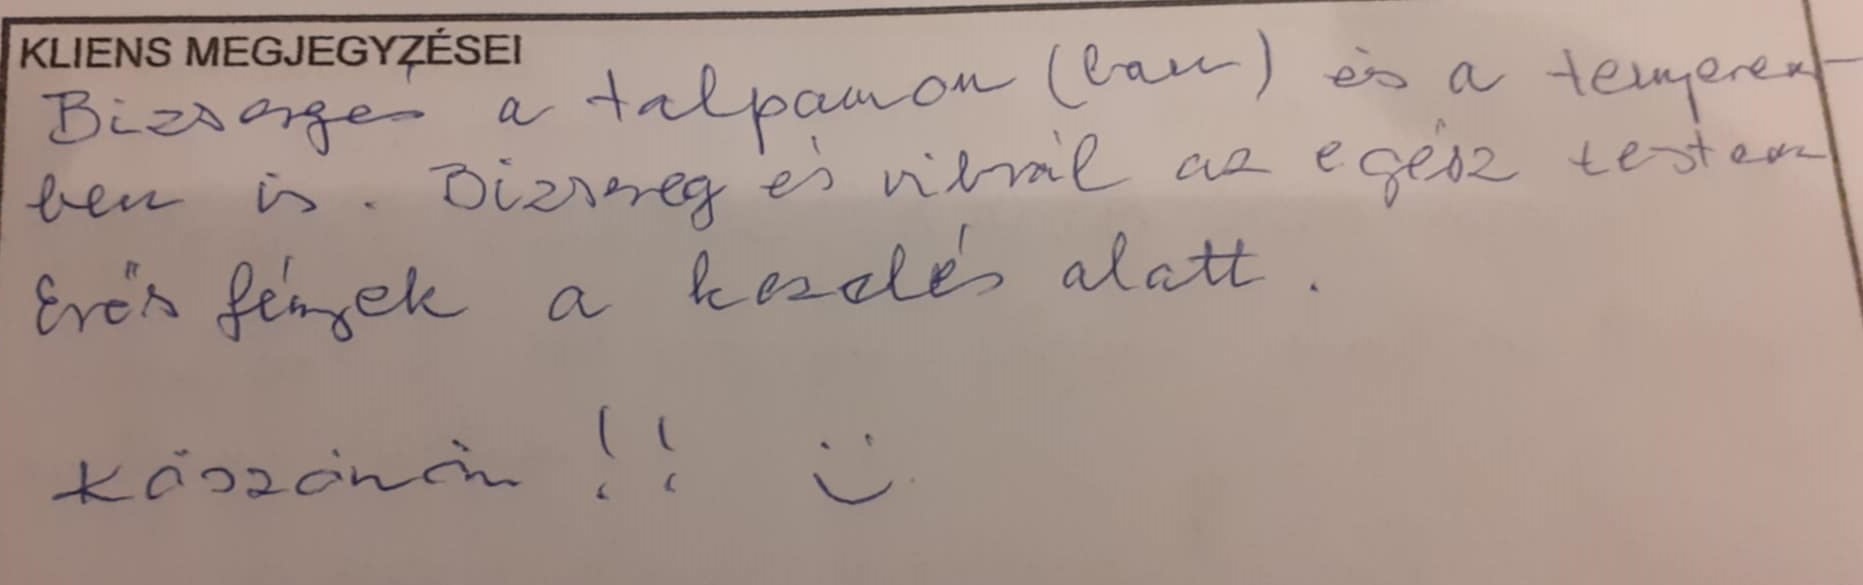 KLIENS MEGJEGYZÉSEI
Bizsergés a talpamon (ban) és a tenyerem-
ben is. Bizsereg és vibrál az egész testem
Erős fények a kezelés alatt.
Köszönöm!! :)